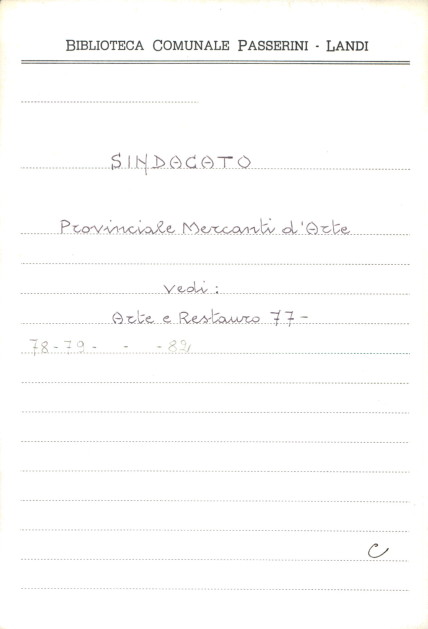 BIBLIOTECA COMUNALE PASSERINI - LANDI
SINDACATO
Provinciale Mercanti d'Arte
vedi:
Arte e Restauro 77-
78-79- - -82
C